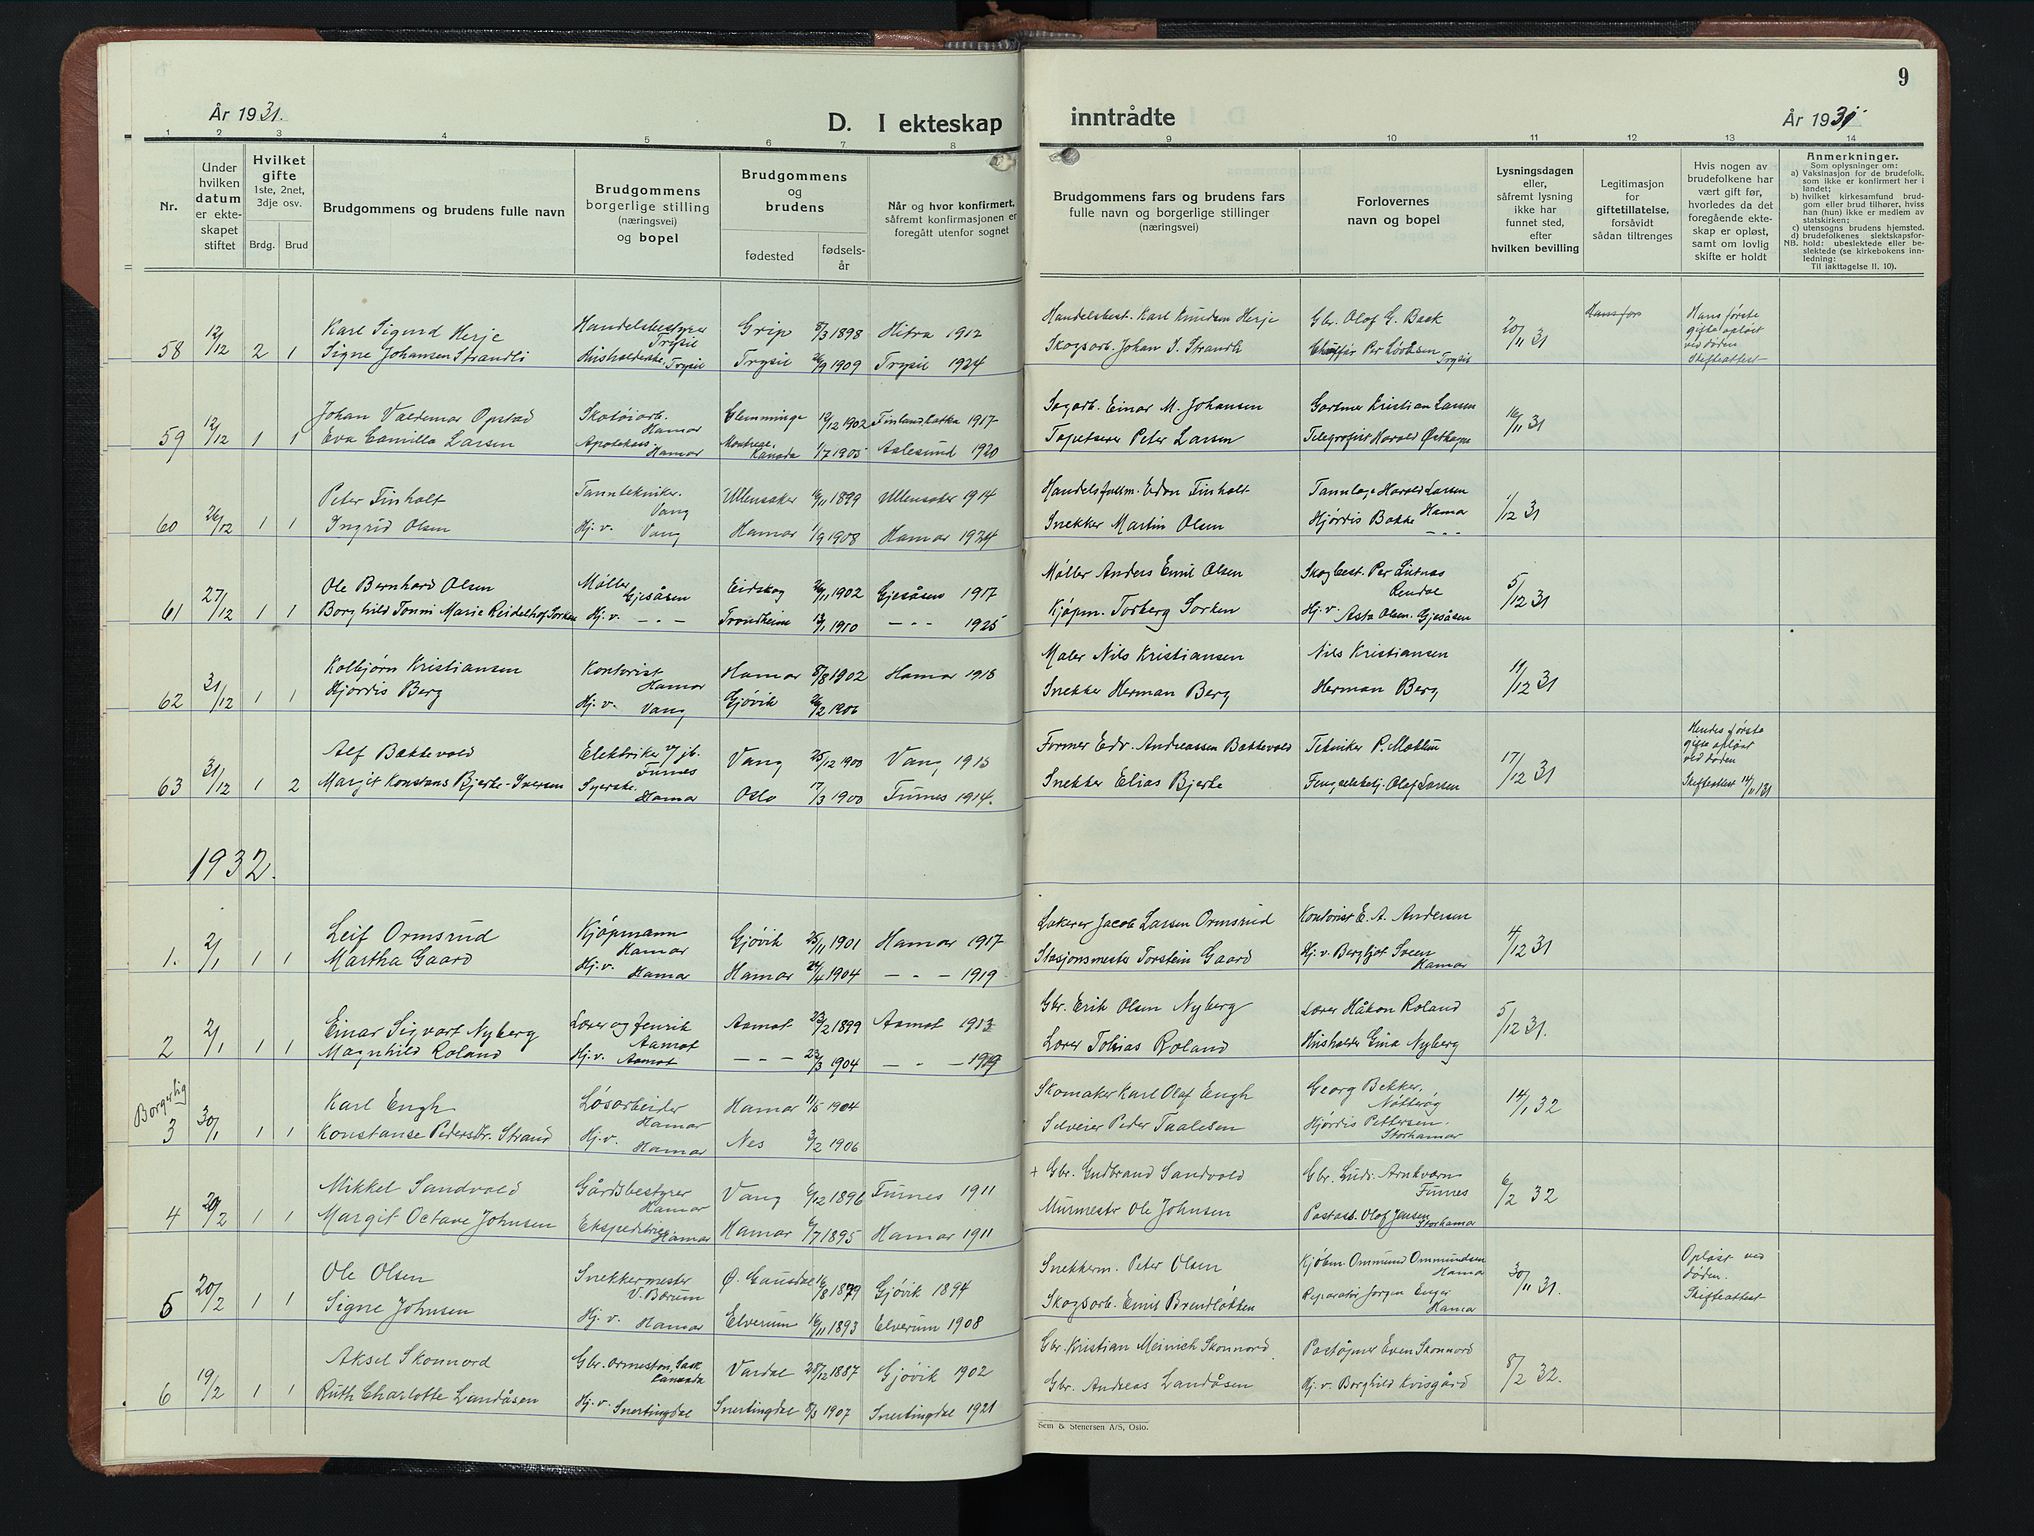 9
År 1931.
D. I ekteskap inntrådte
År 1931
1 2 3 4 5 6 7 8 9 10 11 12 13 14
Nr.
Under hvilken datum er ekteskapet stiftet
Hvilket gifte 1ste, 2net, 3dje osv.
Brdg. Brud
Brudgommens og brudens fulle navn
Brudgommens borgerlige stilling (næringsvei) og bopel
Brudgommens og brudens
fødested
fødselsår
Når og hvor konfirmert, såfremt konfirmasjonen er foregått utenfor sognet
Brudgommens fars og brudens fars fulle navn og borgerlige stillinger (næringsvei)
Forlovernes navn og bopel
Lysningsdagen eller, såfremt lysning ikke har funnet sted, efter hvilken bevilling
Legitimasjon for giftetillatelse, forsåvidt sådan tiltrenges
Hvis nogen av brudefolkene har vært gift før, hvorledes da det foregående ekteskap er opløst, samt om lovlig skifte er holdt
Anmerkninger.
Som oplysninger om:
a) Vaksinasjon for de brudefolk, som ikke er konfirmert her i landet;
b) hvilket kirkesamfund brudgom eller brud tilhører, hviss han (hun) ikke er medlem av statskirken;
c) utensogns brudens hjemsted.
d) brudefolkenes slektskapsforhold: ubeslektede eller beslektede (se kirkebokens innledning:
NB.
Til iakttagelse II. 10).
58 12/12 2 1 Karl Sigurd Herje Handelsbestyrer Trysil Grip 8/3 1898 Hitra 1912 Handelsbest. Karl Knudsen Herje Gbr. Olof G. Bakk 20/11 31 Hans første gifte opløst ved døden Skifteattest
Signe Johansen Strandli Husholderske Trysil Trysil 26/9 1909 Trysil 1924 Skogsarb. Johan S. Strandli Chaufför Per Trysil
59 12/12 1 1 Johan Valdemar Opstad Skotøiarb. Hamar Glemminge 19/12 1902 1917 Sagarb. Einar M. Johansen Gartner Kristian Larsen 16/11 31
Eva Camilla Larsen Apotekass. Hamar Kanada 1/7 1905 Aalesund 1920 Tapetserer Peter Larsen Telegrafist Harald Østhagen
60 26/12 1 1 Peter Finholt Tanntekniker. Vang Ullensaker 16/11 1899 Ullensaker 1914 Handelsfullm. Edon Finholt Tannlæge Harald Larsen Hamar 1/12 31
Ingrid Olsen Hj. v. Vang Hamar 1/9 1908 Hamar 1924 Snekker Martin Olsen Hjördis Bakke - " -
61 27/12 1 1 Ole Bernhard Olsen Møller Gjesåsen Eidskog 26/11 1902 Gjesåsen 1917 Møller Anders Emil Olsen Skogbest. Per Lutnæs Rendal 5/12 31
Borghild Tonni Marie Reidelhof Sorken Hj. v. - " - Trondheim 13/1 1910 - " - 1925 Kjøpm. Torberg Sorken Hj. v. Asta Olsen. Gjesåsen
62 31/12 1 1 Kolbjørn Kristiansen Kontorist Hamar Hamar 8/8 1902 Hamar 1918 Maler Nils Kristiansen Nils Kristiansen 11/12 31
Hjørdis Berg Hj. v. Vang Gjøvik 26/2 1906 Snekker Herman Berg Herman Berg
63 31/12 1 2 Alf Bakkevold Elektriker v/ jb. Furnes Vang 25/12 1900 Vang 1915 Former Edv. Andreassen Bækkevold Tekniker P. 17/12 31 Hendes første gifte opløst ved døden
Margit Konstans Bjerke-Iversen Syerske. Hamar Oslo 17/3 1900 Furnes 1914. Snekker Elias Bjerke Fengselsbetj. Olaf Larsen Skifteattest 14/11 131
1932.
1. 2/1 1 1 Leif Ormsrud Kjøpmann Hamar Gjøvik 25/11 1901 Hamar 1917 Lakerer Jacob Larsen Ormsrud Kontorist E. A. Andersen 4/12 31
Martha Gaard Hj. v. Hamar Hamar 24/4 1904 - " - 1919 Stasjonsmester Torstein Gaard Hj. v. Bergljot Sveen Hamar
2 2/1 1 1 Einar Sigvart Nyberg Lærer og fenrik Aamot Aamot 23/2 1899 Aamot 1913 Gbr. Erik Olsen Nyberg Lærer Håkon Roland 5/12 31.
Magnhild Roland Hj. v. Aamot - " - 23/3 1904 - " - 1919 Lærer Tobias Roland Husholder Gina Nyberg
Borgerlig
3 30/1 1 1 Karl Engh Løsarbeider Hamar Hamar 11/5 1904 Skomaker Karl Olaf Engh Georg Bekker. Nøtterøy 14/1 32
Konstanse Pedersdtr. Strand Hj. v. Hamar Nes 3/2 1906 Seiveier Peder Taalesen Hjørdis Pettersen. Storhamar
4 20/2 1 1 Mikkel Sandvold Gårdsbestyrer Hamar Vang 6/12 1896 Furnes 1911 + Gbr. Gudbrand Sandvold Gbr. Ludv. Arnkværn Furnes 6/2 32
Margit Octave Johnsen Ekspeditrise Hamar Hamar 6/7 1895 Hamar 1911 Murmestr Ole Johnsen Postass. Olaf Jensen Storhamar
5 20/2 1 1 Ole Olsen Snekkermester V. Bærum Ø. Gausdal 16/8 1879 Gjøvik 1894 Snekkerm. Peter Olsen Kjøbm. Ommund Ommundsen Hamar 30/11 31. Opløst ved døden. Skifteattest
Signe Johnsen Hj. v. Hamar Elverum 16/11 1893 Elverum 1908 Skogsarb. Emil Brendløkken Reparatør Jørgen Enger Hamar
6 19/2 1 1 Aksel Skonnord Gbr. Ormeston, Sask Cananda Vardal 28/12 1887 Gjøvik 1902 Gbr. Kristian Meinich Skonnord Poståpner Even Skonnord 8/2 32.
Ruth Charlotte Landåsen Hj. v. Snertingdal Snertingdal 8/3 1907 Snertingdal 1921 Gbr. Andreas Landåsen Hj. v. Borghild Kvisgård
Sem & Stenersen A/S, Oslo.